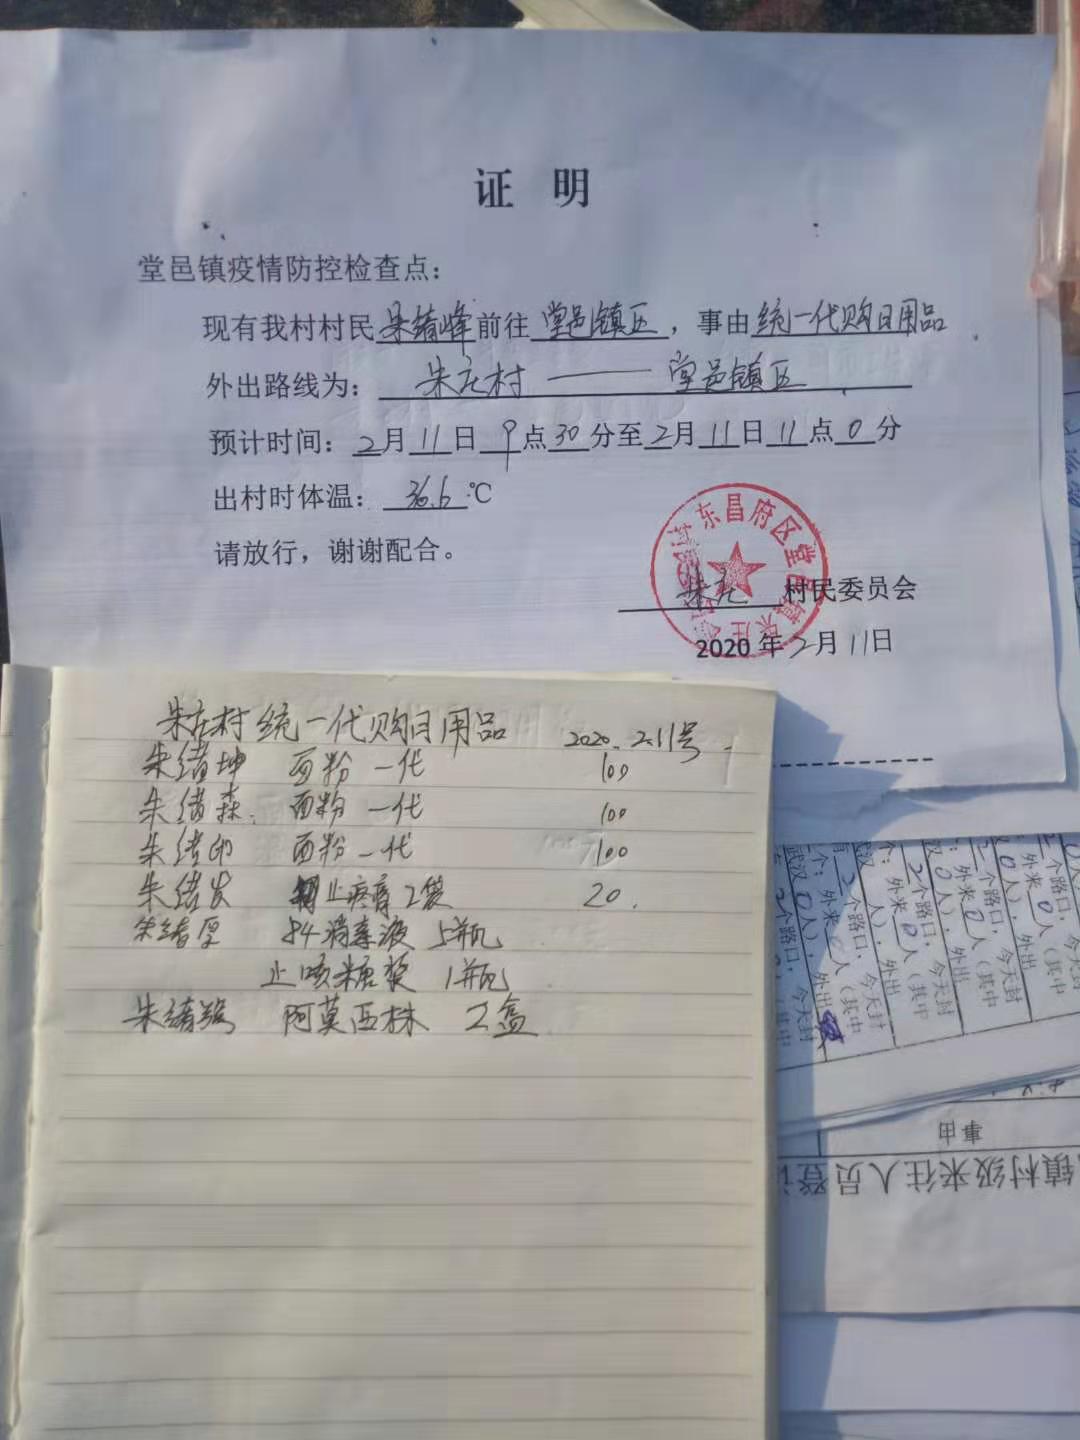 证 明
堂邑镇疫情防控检查点：
现有我村村民朱绪峰前往堂邑镇区，事由统一代购日用品
外出路线为：朱庄村——堂邑镇区
预计时间：2月11日9点30分至2月11日11点0分
出村时体温：36.6℃
请放行，谢谢配合。
东昌府区堂邑镇朱庄
朱庄村民委员会
2020年2月11日
朱庄村统一代购日用品 2020.2.11号
朱绪坤 面粉一代 100
朱绪森. 面粉一代 100
朱绪印 面粉一代 100
朱绪发 止疼膏2袋 20.
朱绪厚 84消毒液 5瓶
止咳糖浆 1瓶
朱绪 阿莫西林 2盒
个路口，今天封
外来0人（其中
0人），外出
2个路口，今天封
武汉0人），外出
事由
镇村级来往人员登